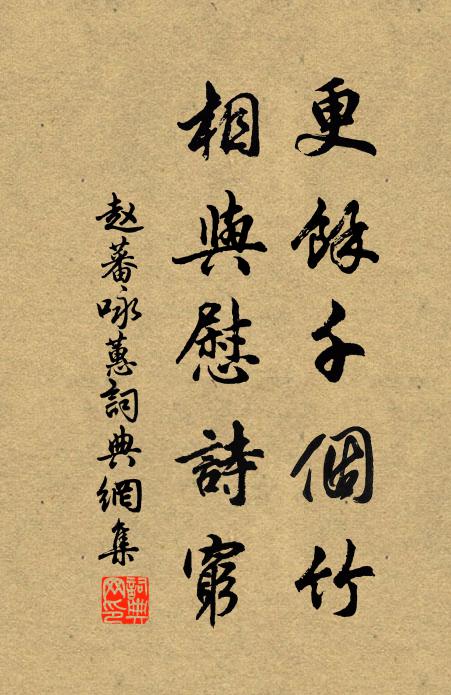 更餘千個竹
相與慰詩窮
赵蕃咏蕙詞典網集
詞典
网印